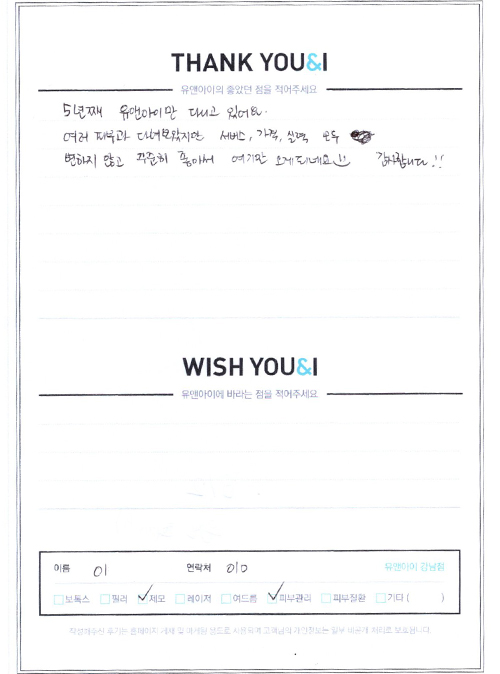 THANK YOU&I
유앤아이의 좋았던 점을 적어주세요
5년째 유앤아이만 다니고 있어요.
여러 피부과 다녀보았지만 서비스, 가격, 실력 모두
변하지 않고 꾸준히 좋아서 여기만 오게되네요 :) 감사합니다!!
WISH YOU&I
유앤아이에 바라는 점을 적어주세요
이름 이 연락처 010 유앤아이 강남점
보톡스 필러 ✓제모 레이저 여드름 ✓피부관리 피부질환 기타 ( )
작성해주신 후기는 홈페이지 게재 및 마케팅 용도로 사용되며 고객님의 개인정보는 일부 비공개 처리로 보호됩니다.